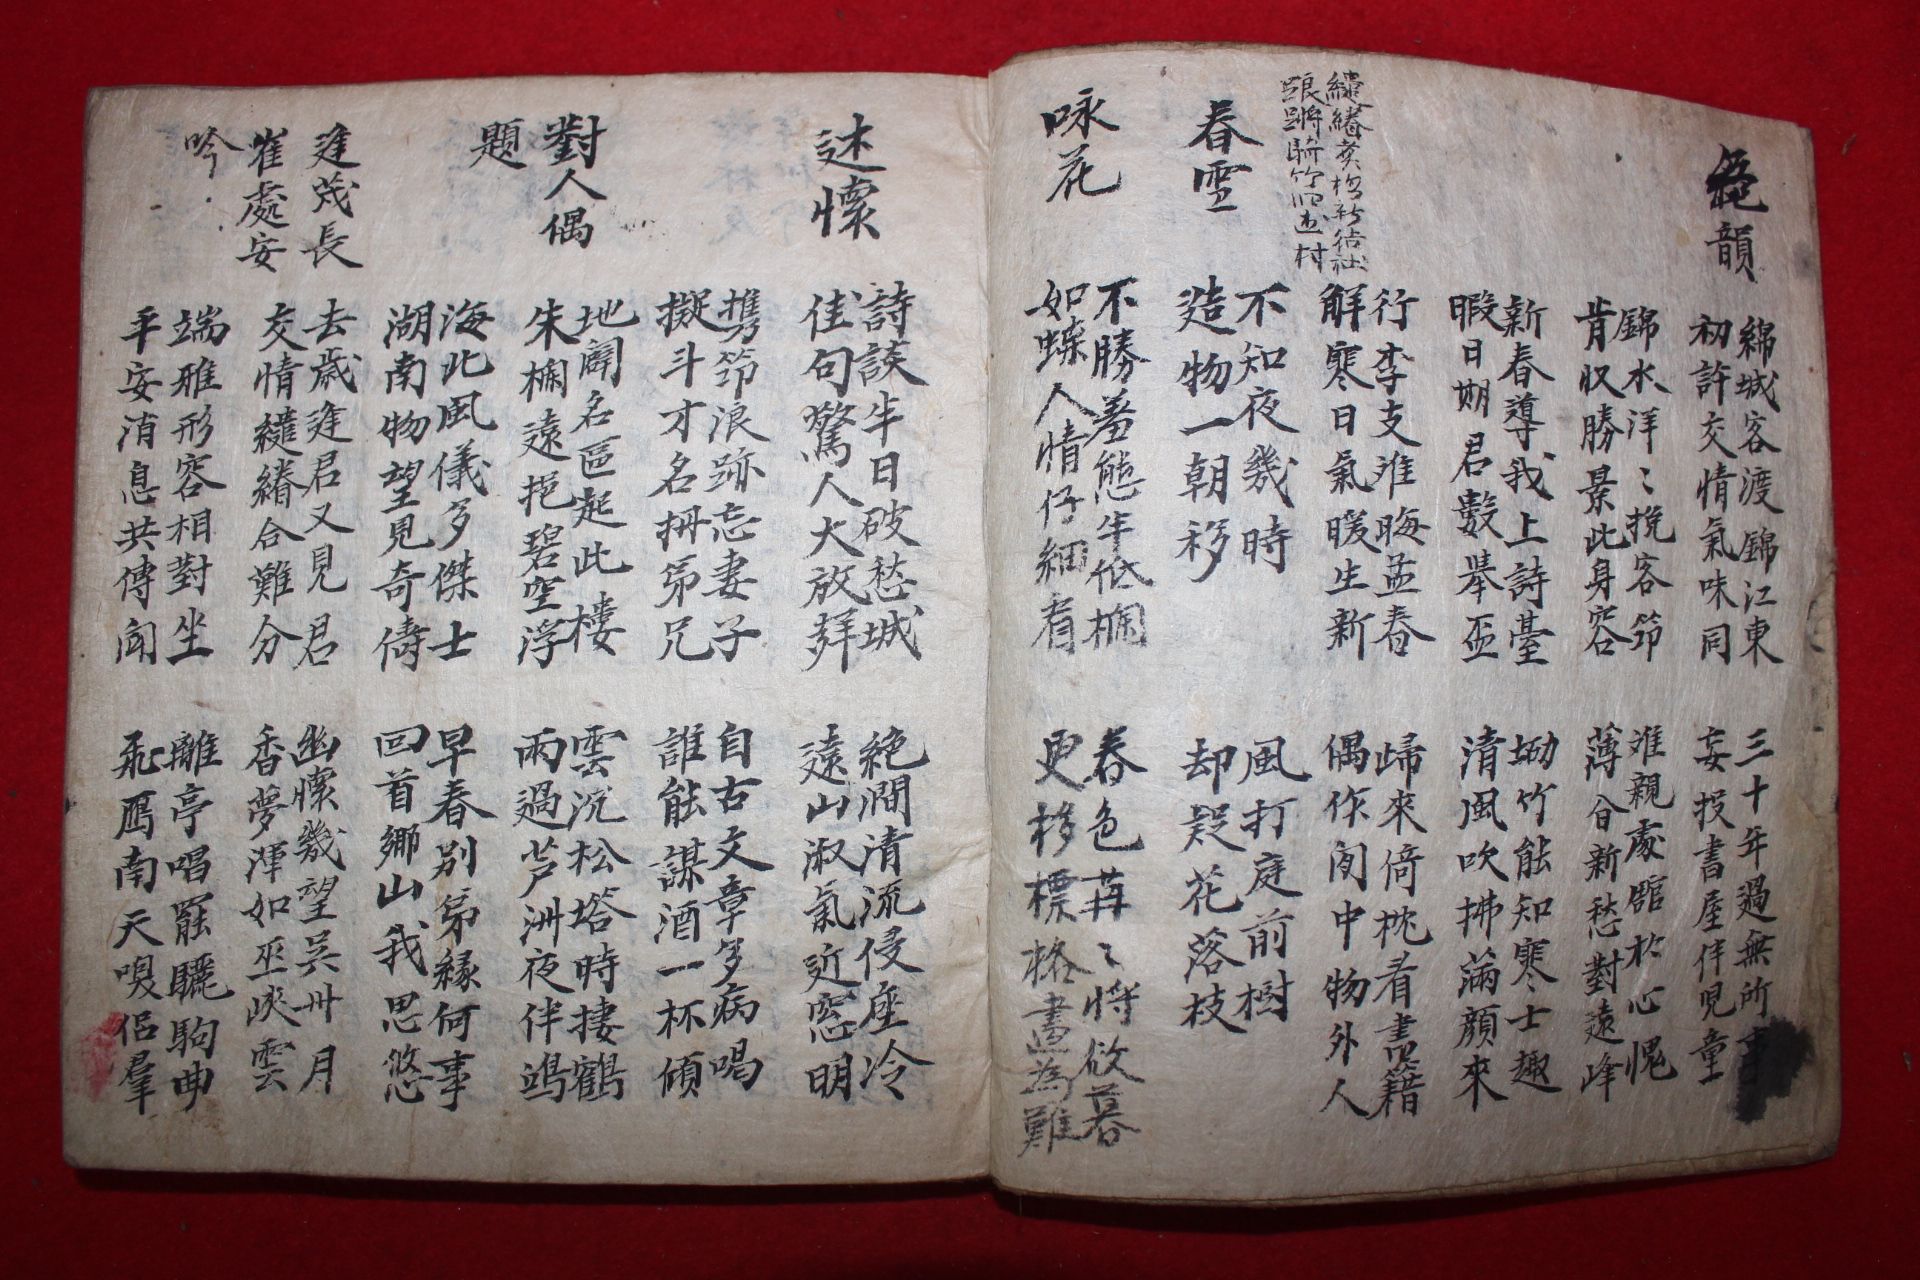 絕韻
綿城客渡錦江東
初許交情氣味同
三十年過無所事
妄投書屋伴児童
錦水洋〻挽客笻
肯収勝景此身容
难親處舘於心愧
薄分新愁對遠峰
新春導我上詩臺
暇日期君數擧盃
坳竹能知寒士趣
清風吹拂滿顔來
行李支难晦孟春
解寒日氣暖生新
歸來倚枕看書籍
偶作閑中物外人
春雪
不知夜幾時
造物一朝移
風打庭前樹
却疑花落枝
咏花
不勝羞態半低欄
如蝶人情仔細看
春色苒〻將欲暮
更移標格畫為難
述懷
詩談半日破愁城
佳句驚人大放拜
絶澗清流侵座冷
遠山淑氣近窓明
携笻浪跡忘妻子
擬斗才名拚弟兄
自古文章多病喝
誰能謀酒一杯傾
對人偶題
地闢名區起此樓
朱欄遠挹碧空浮
雲沉松塔時捿鶴
雨過芦洲夜伴鴻
海北風儀多傑士
湖南物望見奇儔
早春別弟緣何事
回首鄉山我思悠
逢茂長崔處安吟
去歲逢君又見君
交情繾綣合難分
幽懷幾望吳州月
香夢渾如巫峽雲
端雅形容相對坐
平安消息共傳聞
離亭唱罷驪駒曲
飛鴈南天嗅侶羣